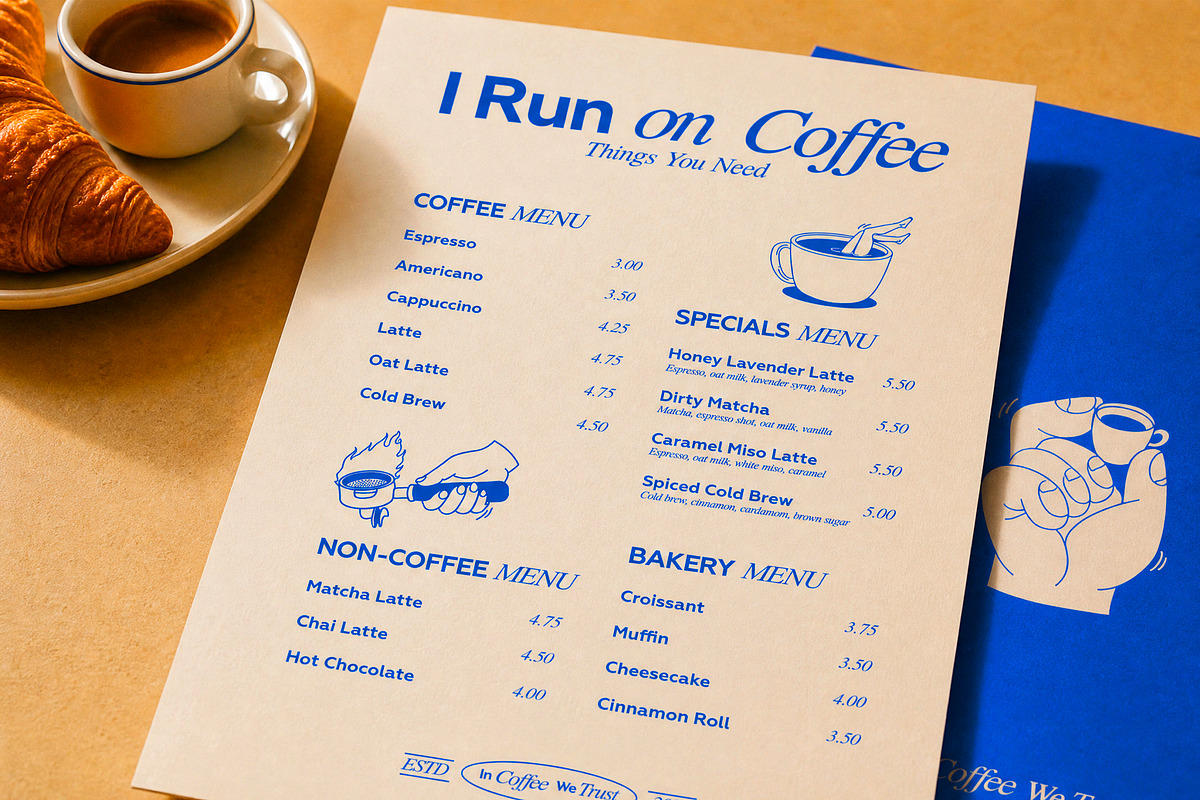 I Run on Coffee
Things You Need
COFFEE MENU
Espresso 3.00
Americano 3.50
Cappuccino 4.25
Latte 4.75
Oat Latte 4.75
Cold Brew 4.50
SPECIALS MENU
Honey Lavender Latte 5.50
Espresso, oat milk, lavender syrup, honey
Dirty Matcha 5.50
Matcha, espresso shot, oat milk, vanilla
Caramel Miso Latte 5.50
Espresso, oat milk, white miso, caramel
Spiced Cold Brew 5.00
Cold brew, cinnamon, cardamom, brown sugar
NON-COFFEE MENU
Matcha Latte 4.75
Chai Latte 4.50
Hot Chocolate 4.00
BAKERY MENU
Croissant 3.75
Muffin 3.50
Cheesecake 4.00
Cinnamon Roll 3.50
ESTD
In Coffee We Trust
Coffee We